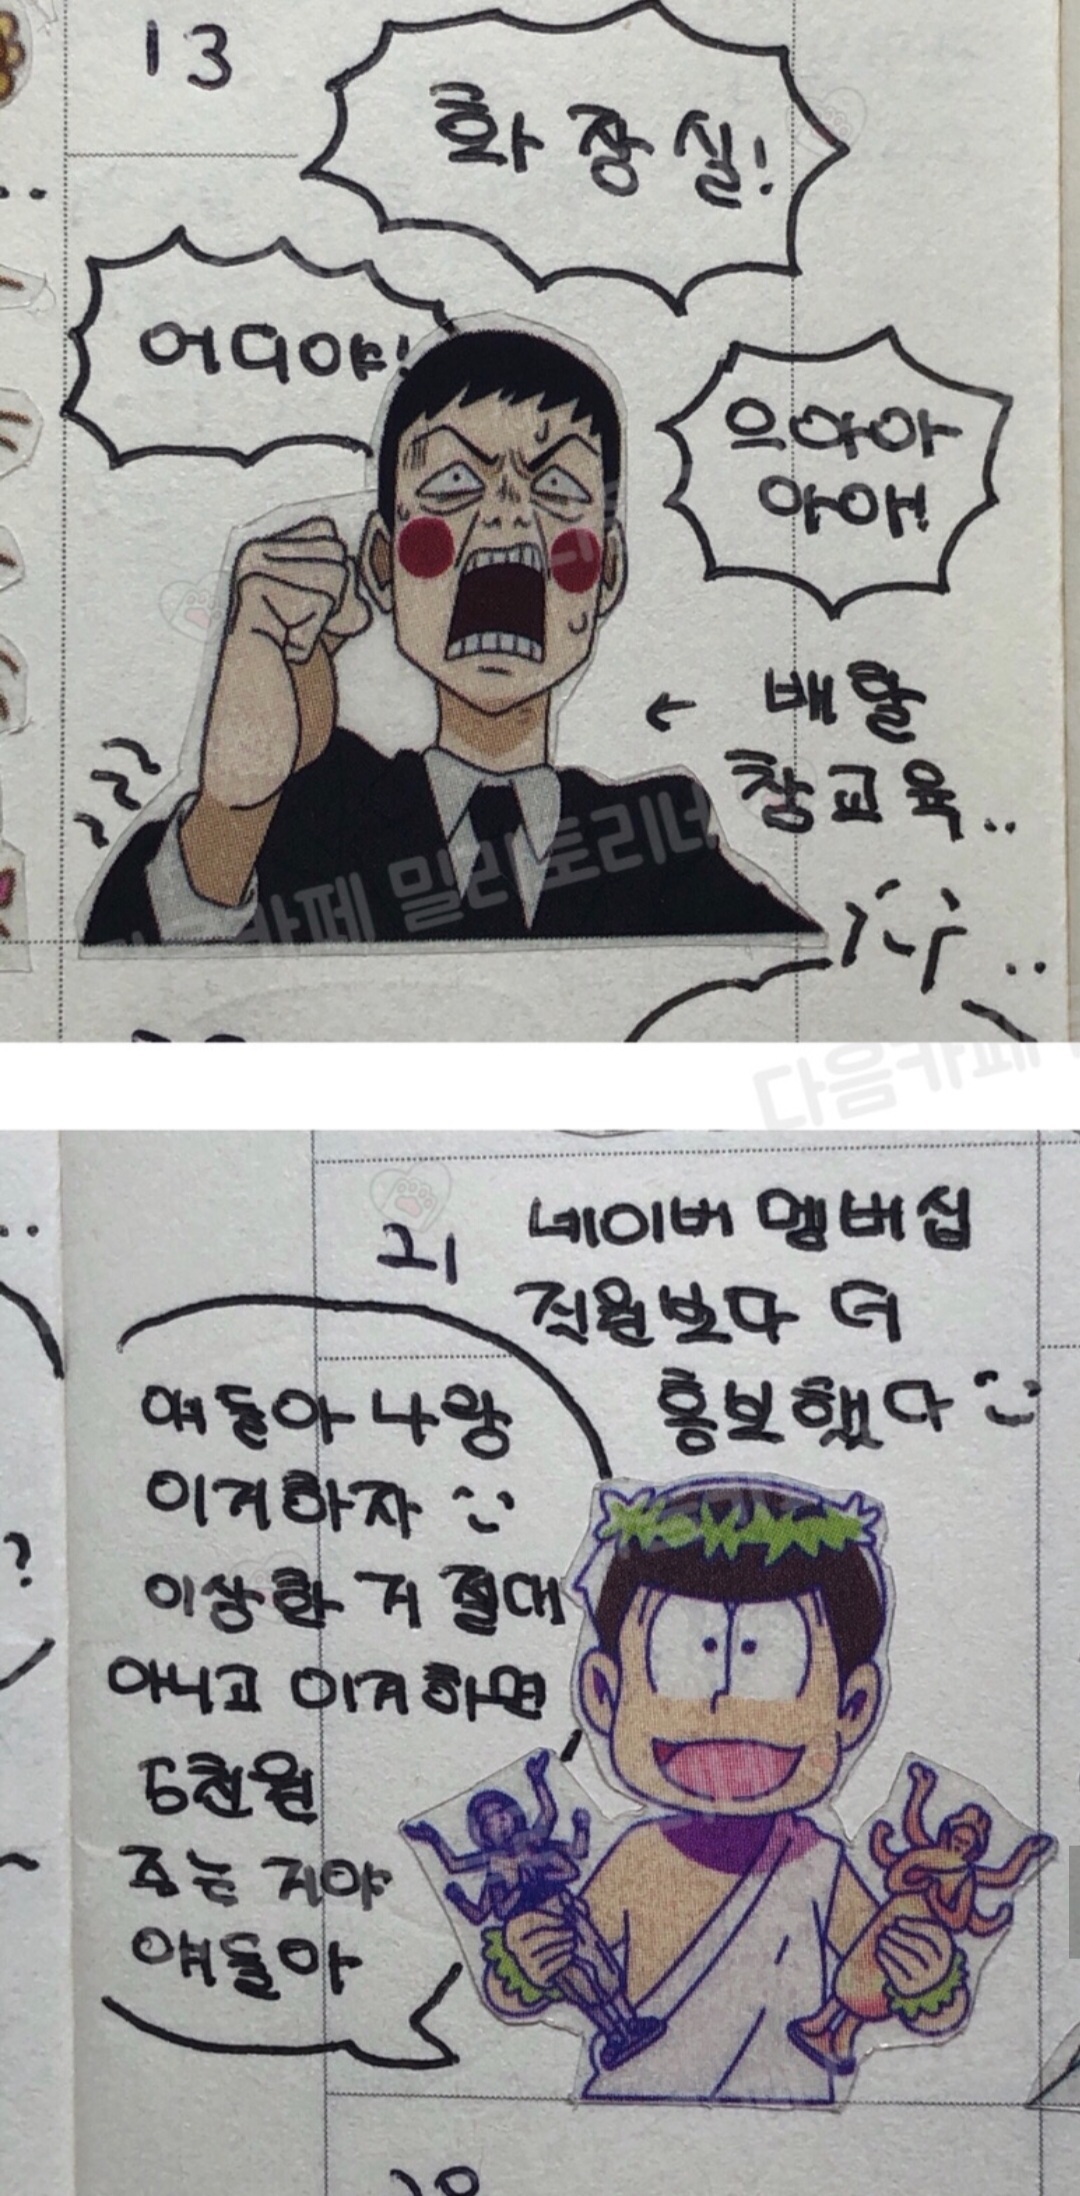 13
화장실!
어디야!
으아아
아아!
← 배탈
창교육..
다음카페 밀리토리네
다음카페
21
네이버 멤버십
직원보다 더
홍보했다
얘들아 나랑
이거하자
이상한 거 절대
아니고 이거하면
5천원
주는 거야
얘들아